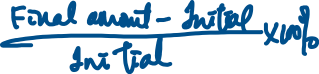 Final amount - Initial
Initial
×100%